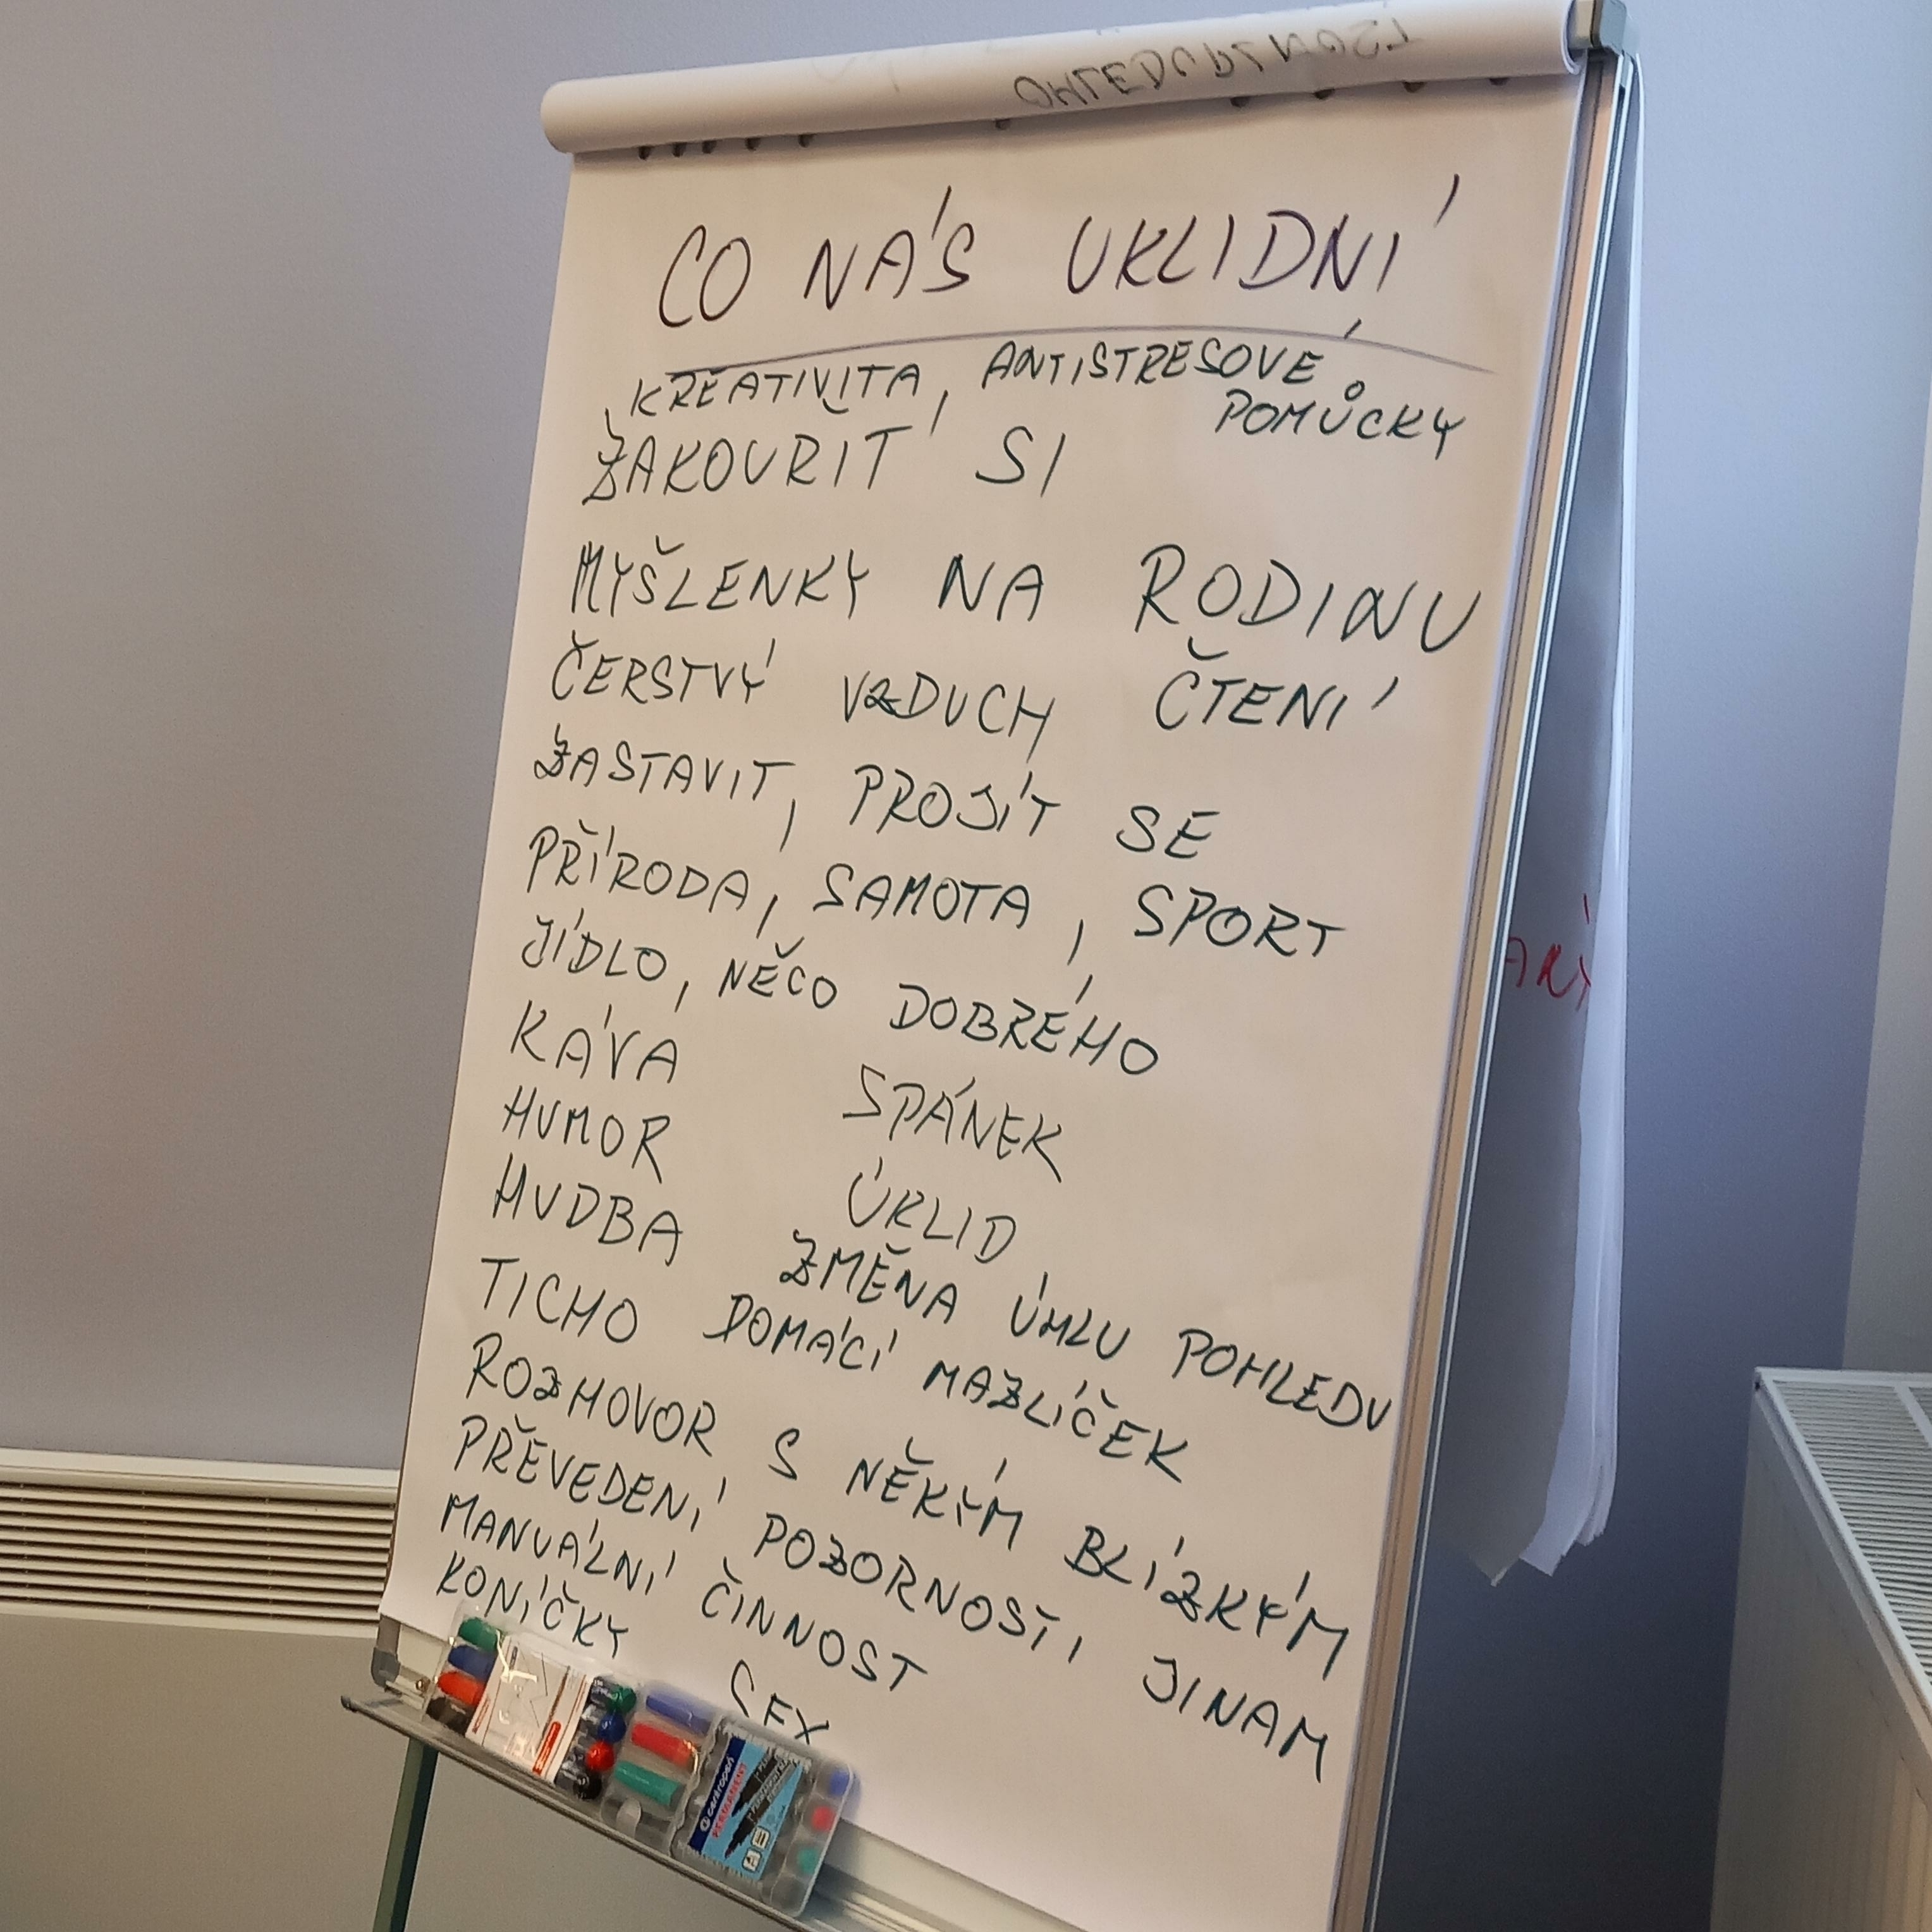 CO NÁS UKLIDNÍ
KREATIVITA, ANTISTRESOVÉ
POMŮCKY
ZAKOUŘIT SI
MYŠLENKY NA RODINU
ČERSTVÝ VZDUCH ČTENÍ
ZASTAVIT, PROJÍT SE
PŘÍRODA, SAMOTA, SPORT
JÍDLO, NĚCO DOBRÉHO
KÁVA SPÁNEK
HUMOR ÚKLID
HUDBA ZMĚNA ÚHLU POHLEDU
TICHO DOMÁCÍ MAZLÍČEK
ROZHOVOR S NĚKÝM BLÍZKÝM
PŘEVEDENÍ POZORNOSTI JINAM
MANUÁLNÍ ČINNOST
KONÍČKY SEX
centropen
PERMANENT